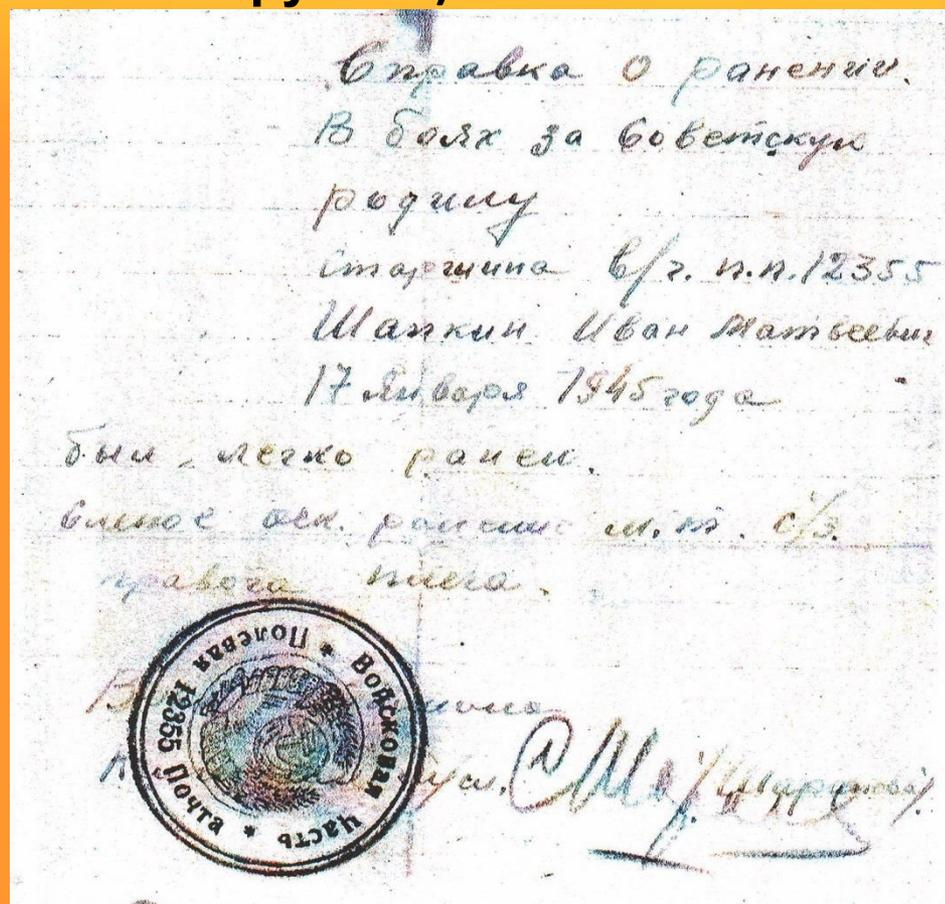 Справка о ранении.
В боях за Советскую
родину
старшина в/ч. п.п. 12355
Шапкин Иван Матвеевич
17 января 1945 года
был легко ранен.
оск. ранение м.т. с/з.
правого плеча.
Войсковая часть * Полевая Почта 12355 *